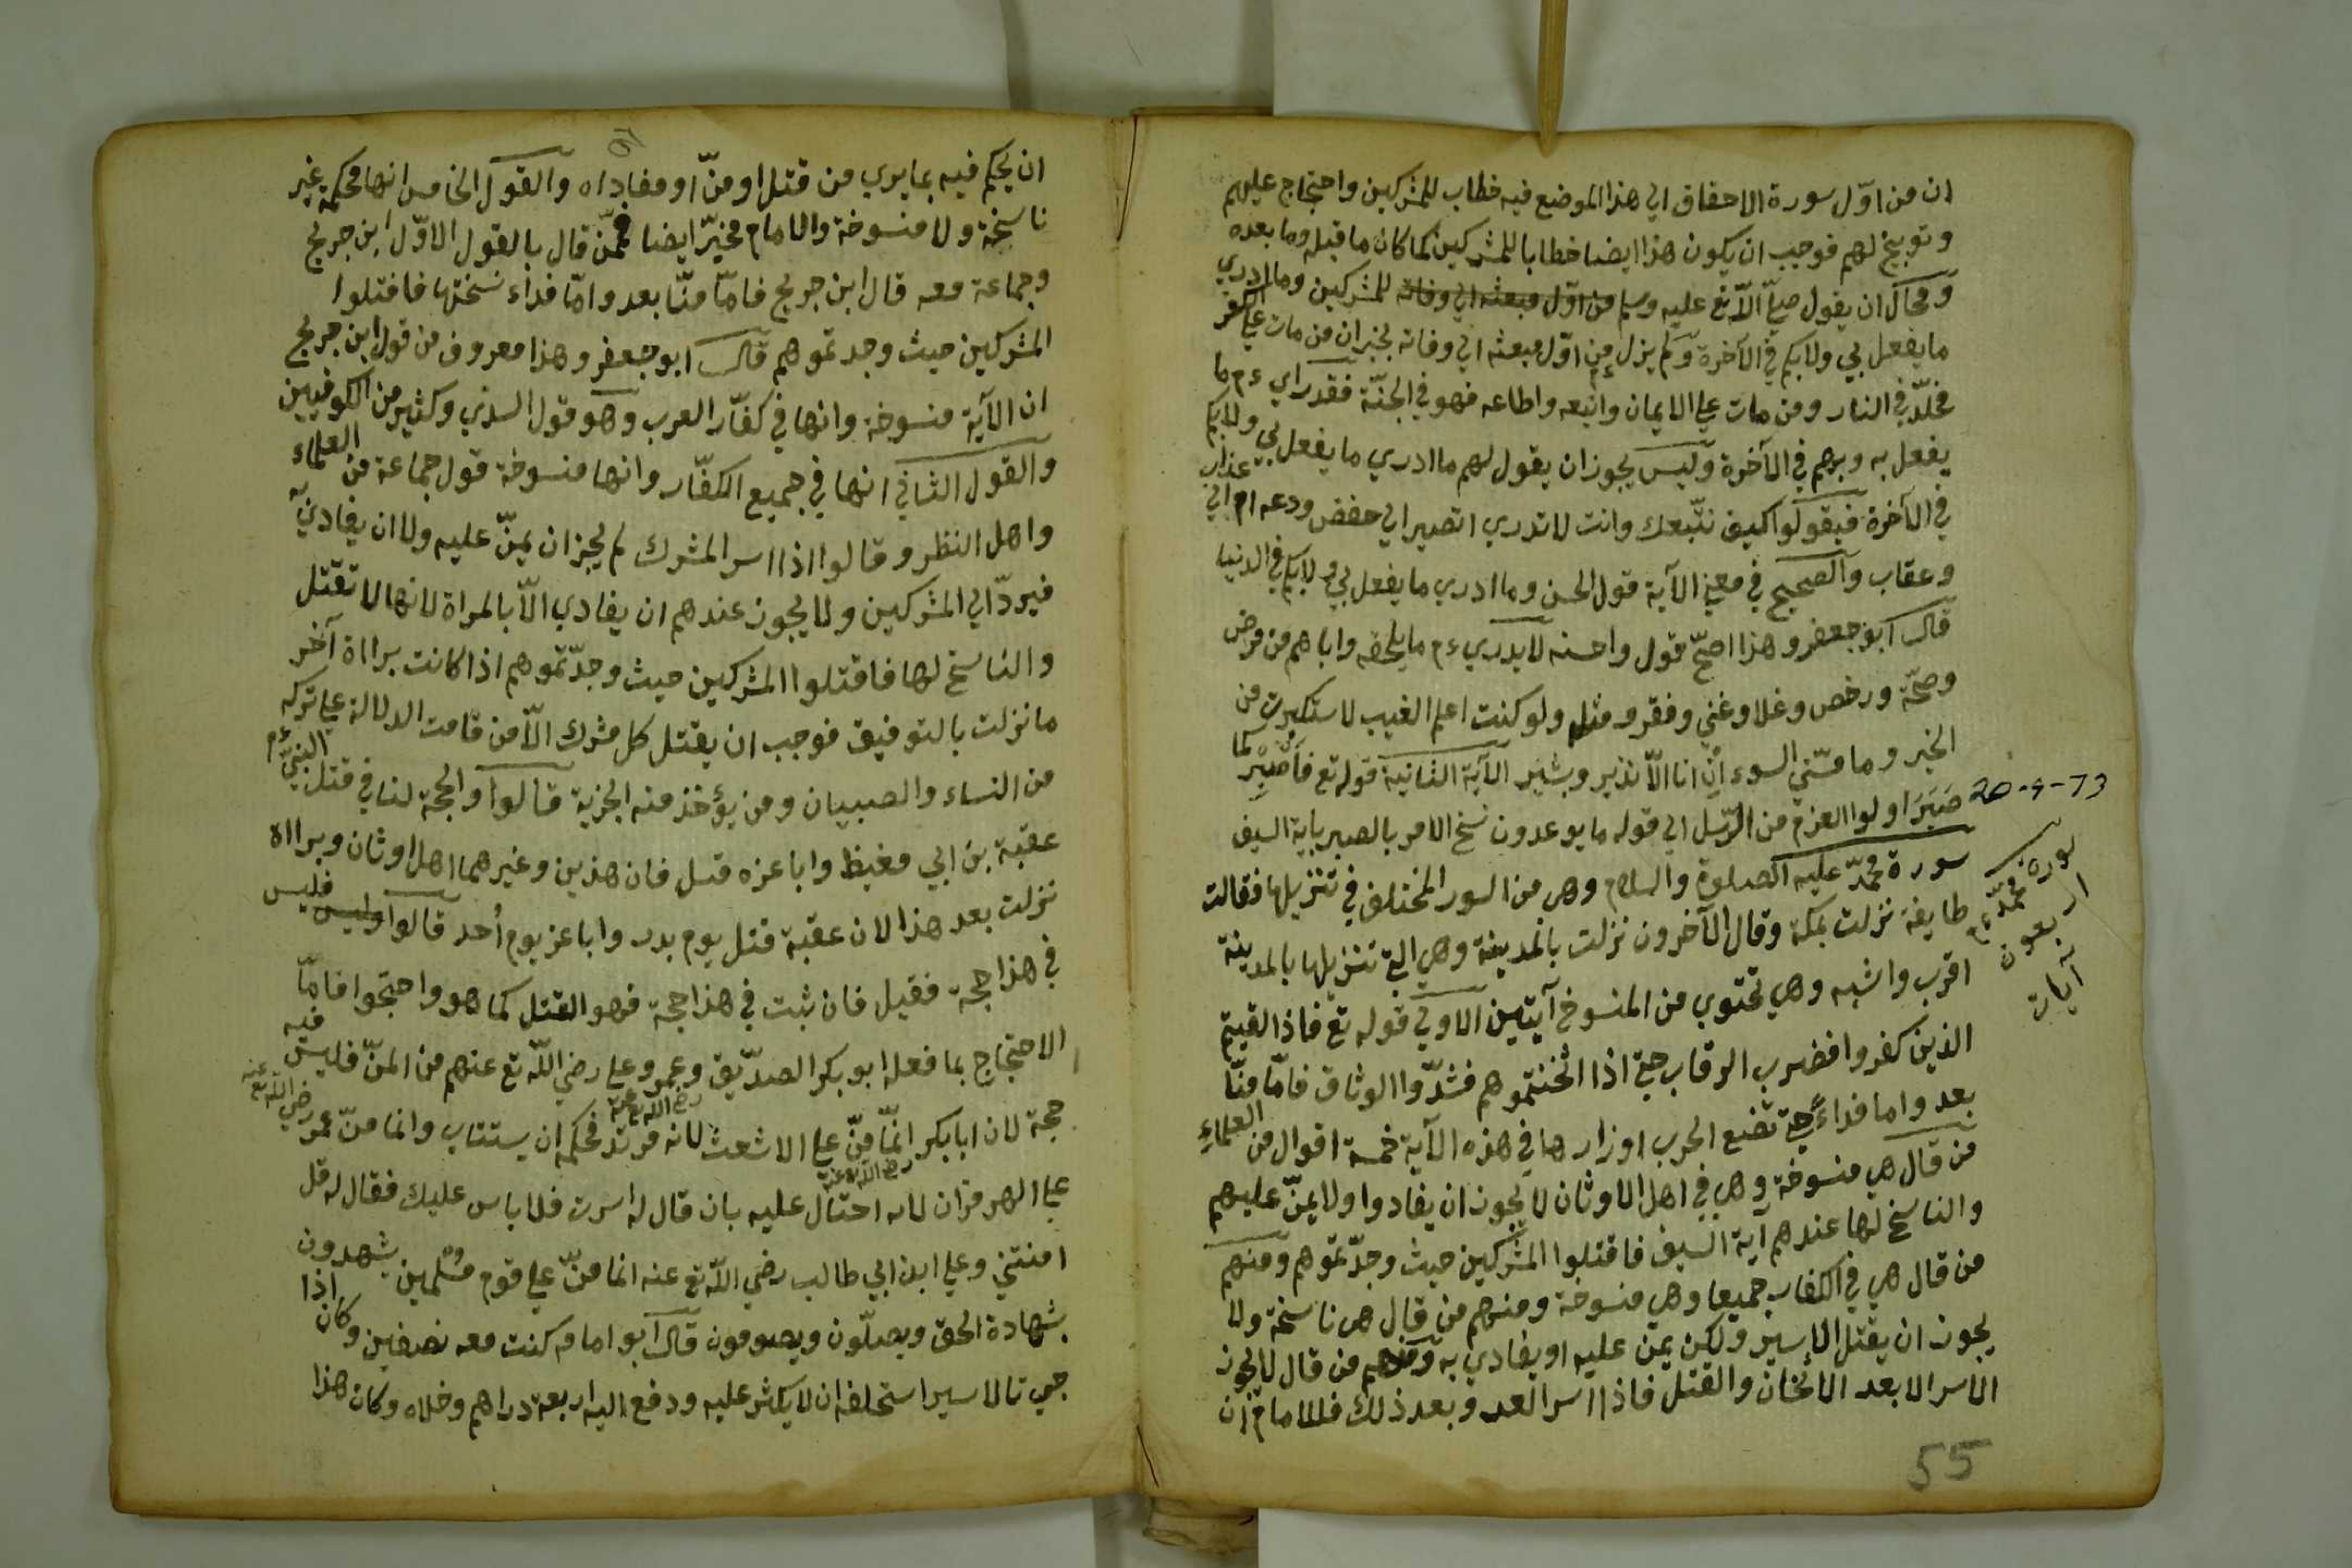 ان من اوّل سورة الاحقاق الي هذا الموضع فيه خطاب للمشركين واحتجاج عليهم
وتوبيخ لهم فوجب ان يكون هذا ايضا خطابا للمشركين كما كان ما قبله وما بعده
ومحال ان يقول صلّي اللّه تع عليه وسلم من اوّل مبعثه الي وفاته للمشركين وما ادري
ما يفعل بي ولا بكم في الآخرة ولم يزل من اوّل مبعثه الي وفاته يخبر ان من مات علي الكفر
مخلّد في النار ومن مات علي الايمان واتبعه واطاعه فهو في الجنّة فقد راي ءم ما
يفعل به وبهم في الآخرة وليس يجوز ان يقول لهم ما ادري ما يفعل بي ولا بكم
في الآخرة فيقولوا كيف نتّبعك وانت لا تدري اتصير الي خفض ودعه ام الي عذاب
وعقاب والصحيح في معني الآية قول الحسن وما ادري ما يفعل بي ولا بكم في الدنيا
قال ابو جعفر وهذا اصحّ قول واحسنه لا يدري ءم ما يلحقه واياهم من مرض
وصحّة ورخص وغلا وغني وفقر ومثله ولو كنت اعلم الغيب لاستكثرت من
الخير وما مسّني السوء ان انا الّا نذير وبشير الآية الثانية قوله تع فاصبر كما
صَبَرَ اولوا العزم من الرّسل الي قوله ما يوعدون نسخ الامر بالصبر باية السيف
20-9-73
سورة محمّد عليه الصلوة والسلام وهي من السور المختلف في تنزيلها فقالت
سورة محمّد ءم
اربعون
آيات
طايفة نزلت بمكة وقال الآخرون نزلت بالمدينة وهي الي تنزيلها بالمدينة
اقرب واشبه وهي تحتوي من المنسوخ آيتين الاولي قوله تع فاذا لقيتم
الذين كفروا فضرب الرقاب حتي اذا اثخنتموهم فشدّوا الوثاق فامّا منّا
بعد واما فداءً حتي تضع الحرب اوزارها في هذه الآية خمسة اقوال من العلماء
من قال هي منسوخة وهي في اهل الاوثان لا يجوز ان يفادوا ولا يمنّ عليهم
والناسخ لها عندهم آية السيف فاقتلوا المشركين حيث وجدّتموهم ومنهم
من قال هي في الكفار جميعا وهي منسوخة ومنهم من قال هي ناسخة ولا
يجوز ان يقتل الاسير ولكن يمن عليه او يفادي به ومنهم من قال لا يجوز
الاسر الا بعد الاثخان والقتل فاذا اسر العد وبعد ذلك فللامام ان
55
ان يحكم فيه بما يري من قتل او منّ او مفاداه والقول الخامس انها محكمة غير
ناسخة ولا منسوخة والامام مخيّر ايضا فممّن قال بالقول الاوّل ابن جريج
وجماعة معه قال ابن جريج فامّا منّا بعد وامّا فداء نسختها فاقتلوا
المشركين حيث وجدتموهم قال ابو جعفر وهذا معروف من قول ابن جريج
ان الآية منسوخة وانها في كفّار العرب وهو قول السدي وكثير من الكوفيين
والقول الثاني انها في جميع الكفّار وانها منسوخة قول جماعة من العلماء
واهل النظر وقالوا اذا اسر المشرك لم يجز ان يمنّ عليه ولا ان يفادي به
فيردّ الي المشركين ولا يجوز عندهم ان يفادي الّا بالمراة لانها لا تقتل
والناسخ لها فاقتلوا المشركين حيث وجدّتموهم اذا كانت براءة آخر
ما نزلت بالتوفيق فوجب ان يقتل كل مشرك الّا من قامت الدلالة علي تركه
من النساء والصبيان ومن يؤخذ منه الجزية قالوا والحجة لنا في قتل النبيّ ءم
عقبة بن ابي مغيظ وابا عزه قتل فان هذين وغيرهما اهل اوثان وبراءة
نزلت بعد هذا لان عقبة قتل يوم بدر وابا عز يوم أحد قالوا وليس فليس
في هذا حجة فقيل فان ثبت في هذا حجة فهو القتل كما هو واحتجوا فامّا
الاحتجاج بما فعله ابو بكر الصدّيق وعمر وعلي رضي اللّه تع عنهم من المنّ فليس فيه
حجة لان ابا بكر رضي اللّه تع عنه انّما منّ علي الاشعث لانه مرتد فحكمه ان يستتاب وانما منّ عمر رضي اللّه تع عنه
علي الهرمزان لانه احتال عليه بان قال له اسرت فلا باس عليك فقال له قل
امنتني وعلي ابن ابي طالب رضي اللّه تع عنه انما منّ علي قوم مُسْلمين يشهدون
بشهادة الحق ويصلّون ويصومون قال ابو امامه كنت معه نصفين وكان اذا
جي تالاسير استحلفه ان لا يكثر عليه ودفع اليه اربعة دراهم وخلاه وكان هذا